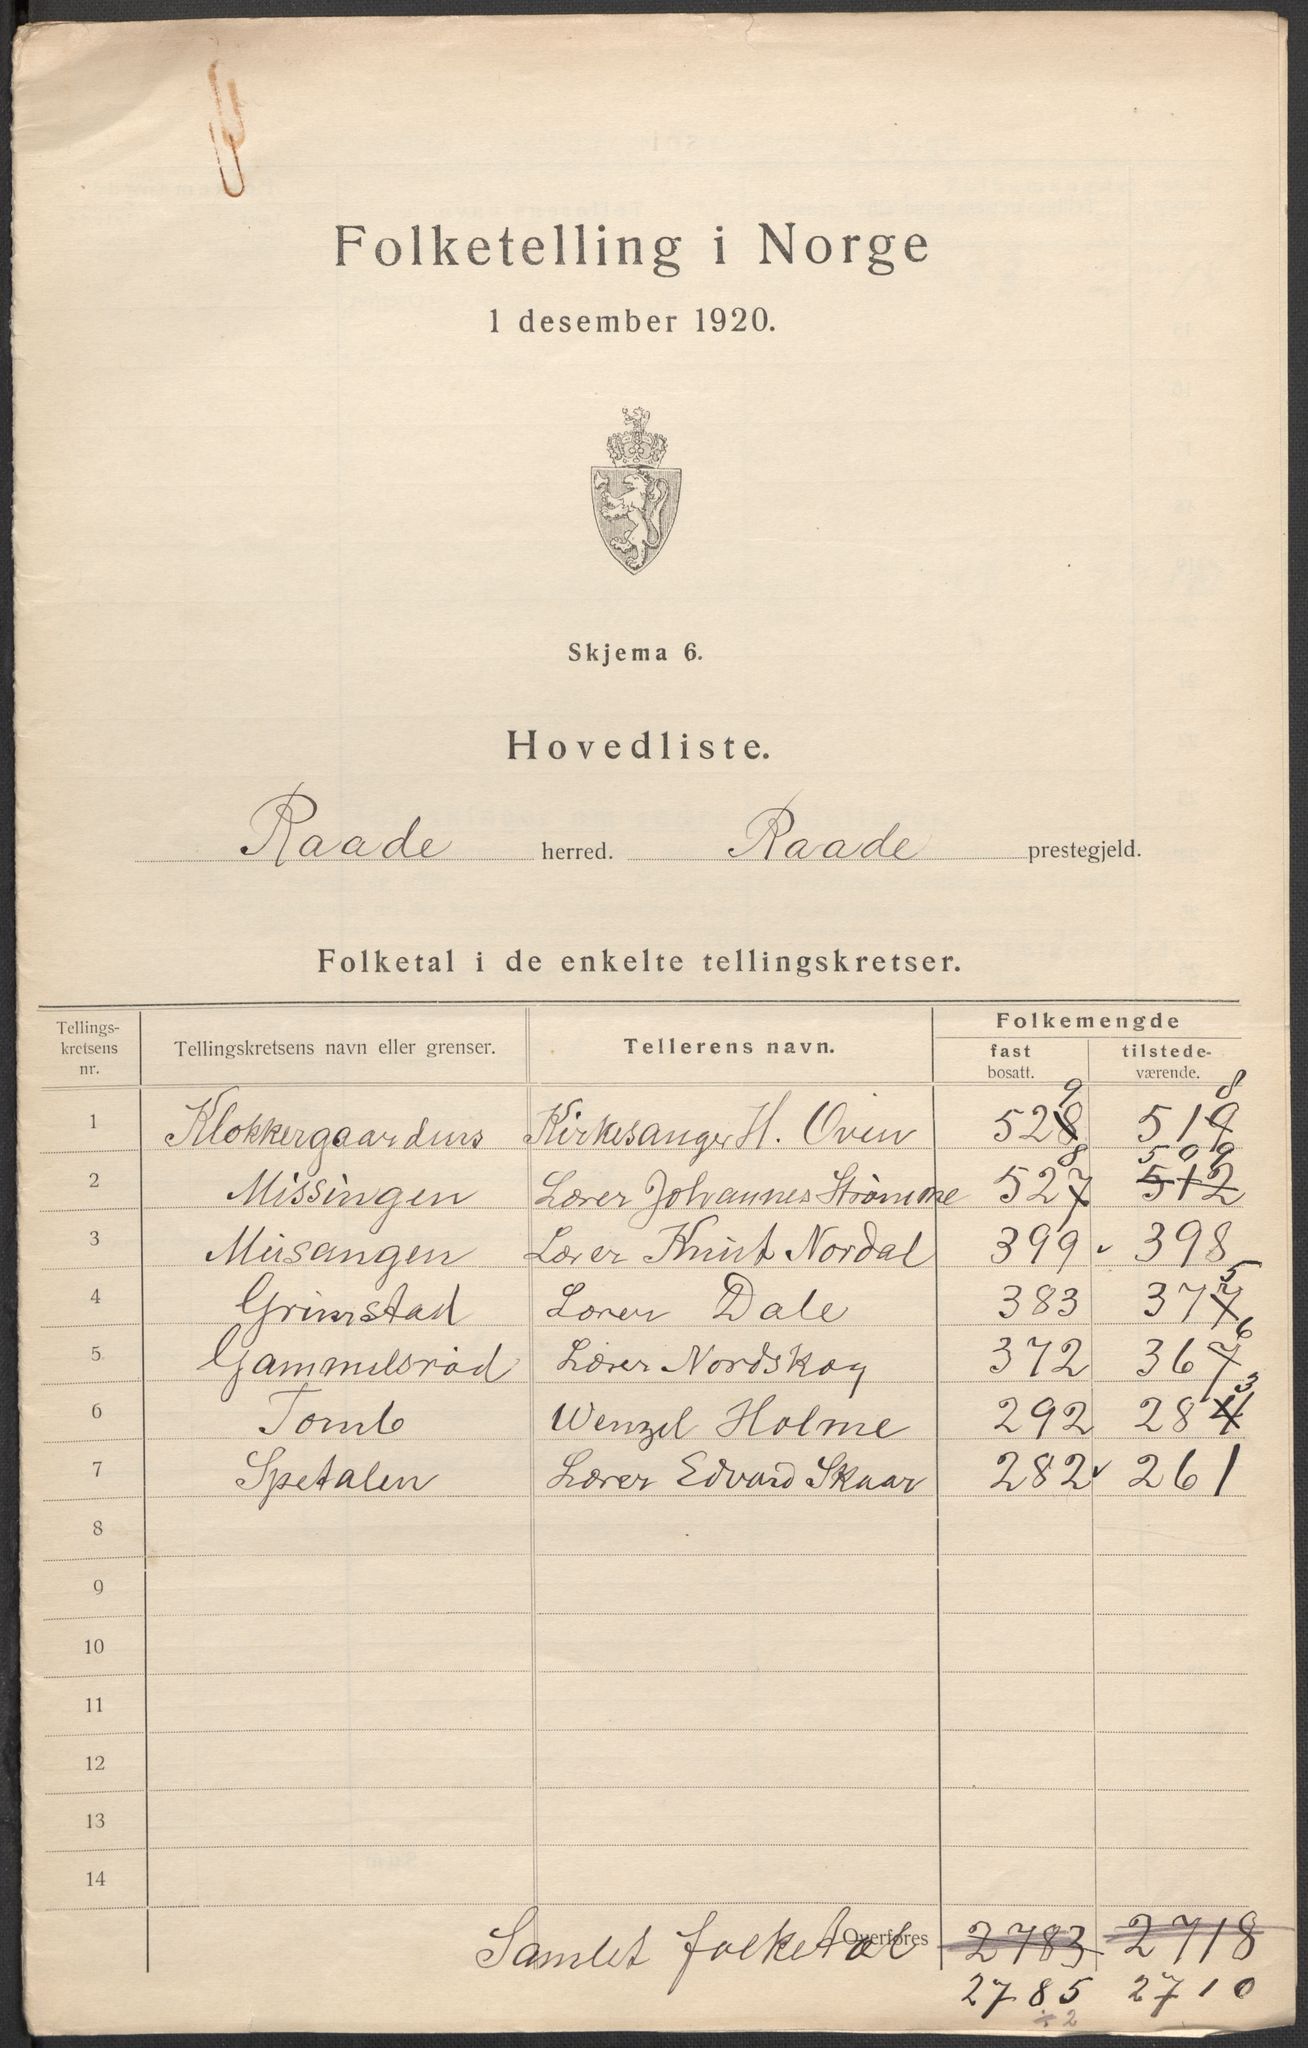 Folketelling i Norge
1 desember 1920.
Skjema 6.
Hovedliste.
Raade herred. Raade prestegjeld.
Folketal i de enkelte tellingskretser.
Tellings-
kretsens
nr.
Tellingskretsens navn eller grenser.
Tellerens navn.
Folkemengde
fast
bosatt.
tilstede-
værende.
9 8
1 Klokkergaardens Kirkesanger H. Oven 528 519
8 509
2 Missingen Lærer Johannes Strømme 527 512
3 Meisangen Lærer Knut Nordal 399 398
5
4 Grimstad Lærer Dale 383 377
6
5 Gammelsrød Lærer Nordskog 372 367
3
6 Tomb Wenzel Holme 292 284
7 Spetalen Lærer Edvard Skaar 282 261
8
9
10
11
12
13
14
Samlet folketal Overføres 2783 2718
2785 2710
÷ 2